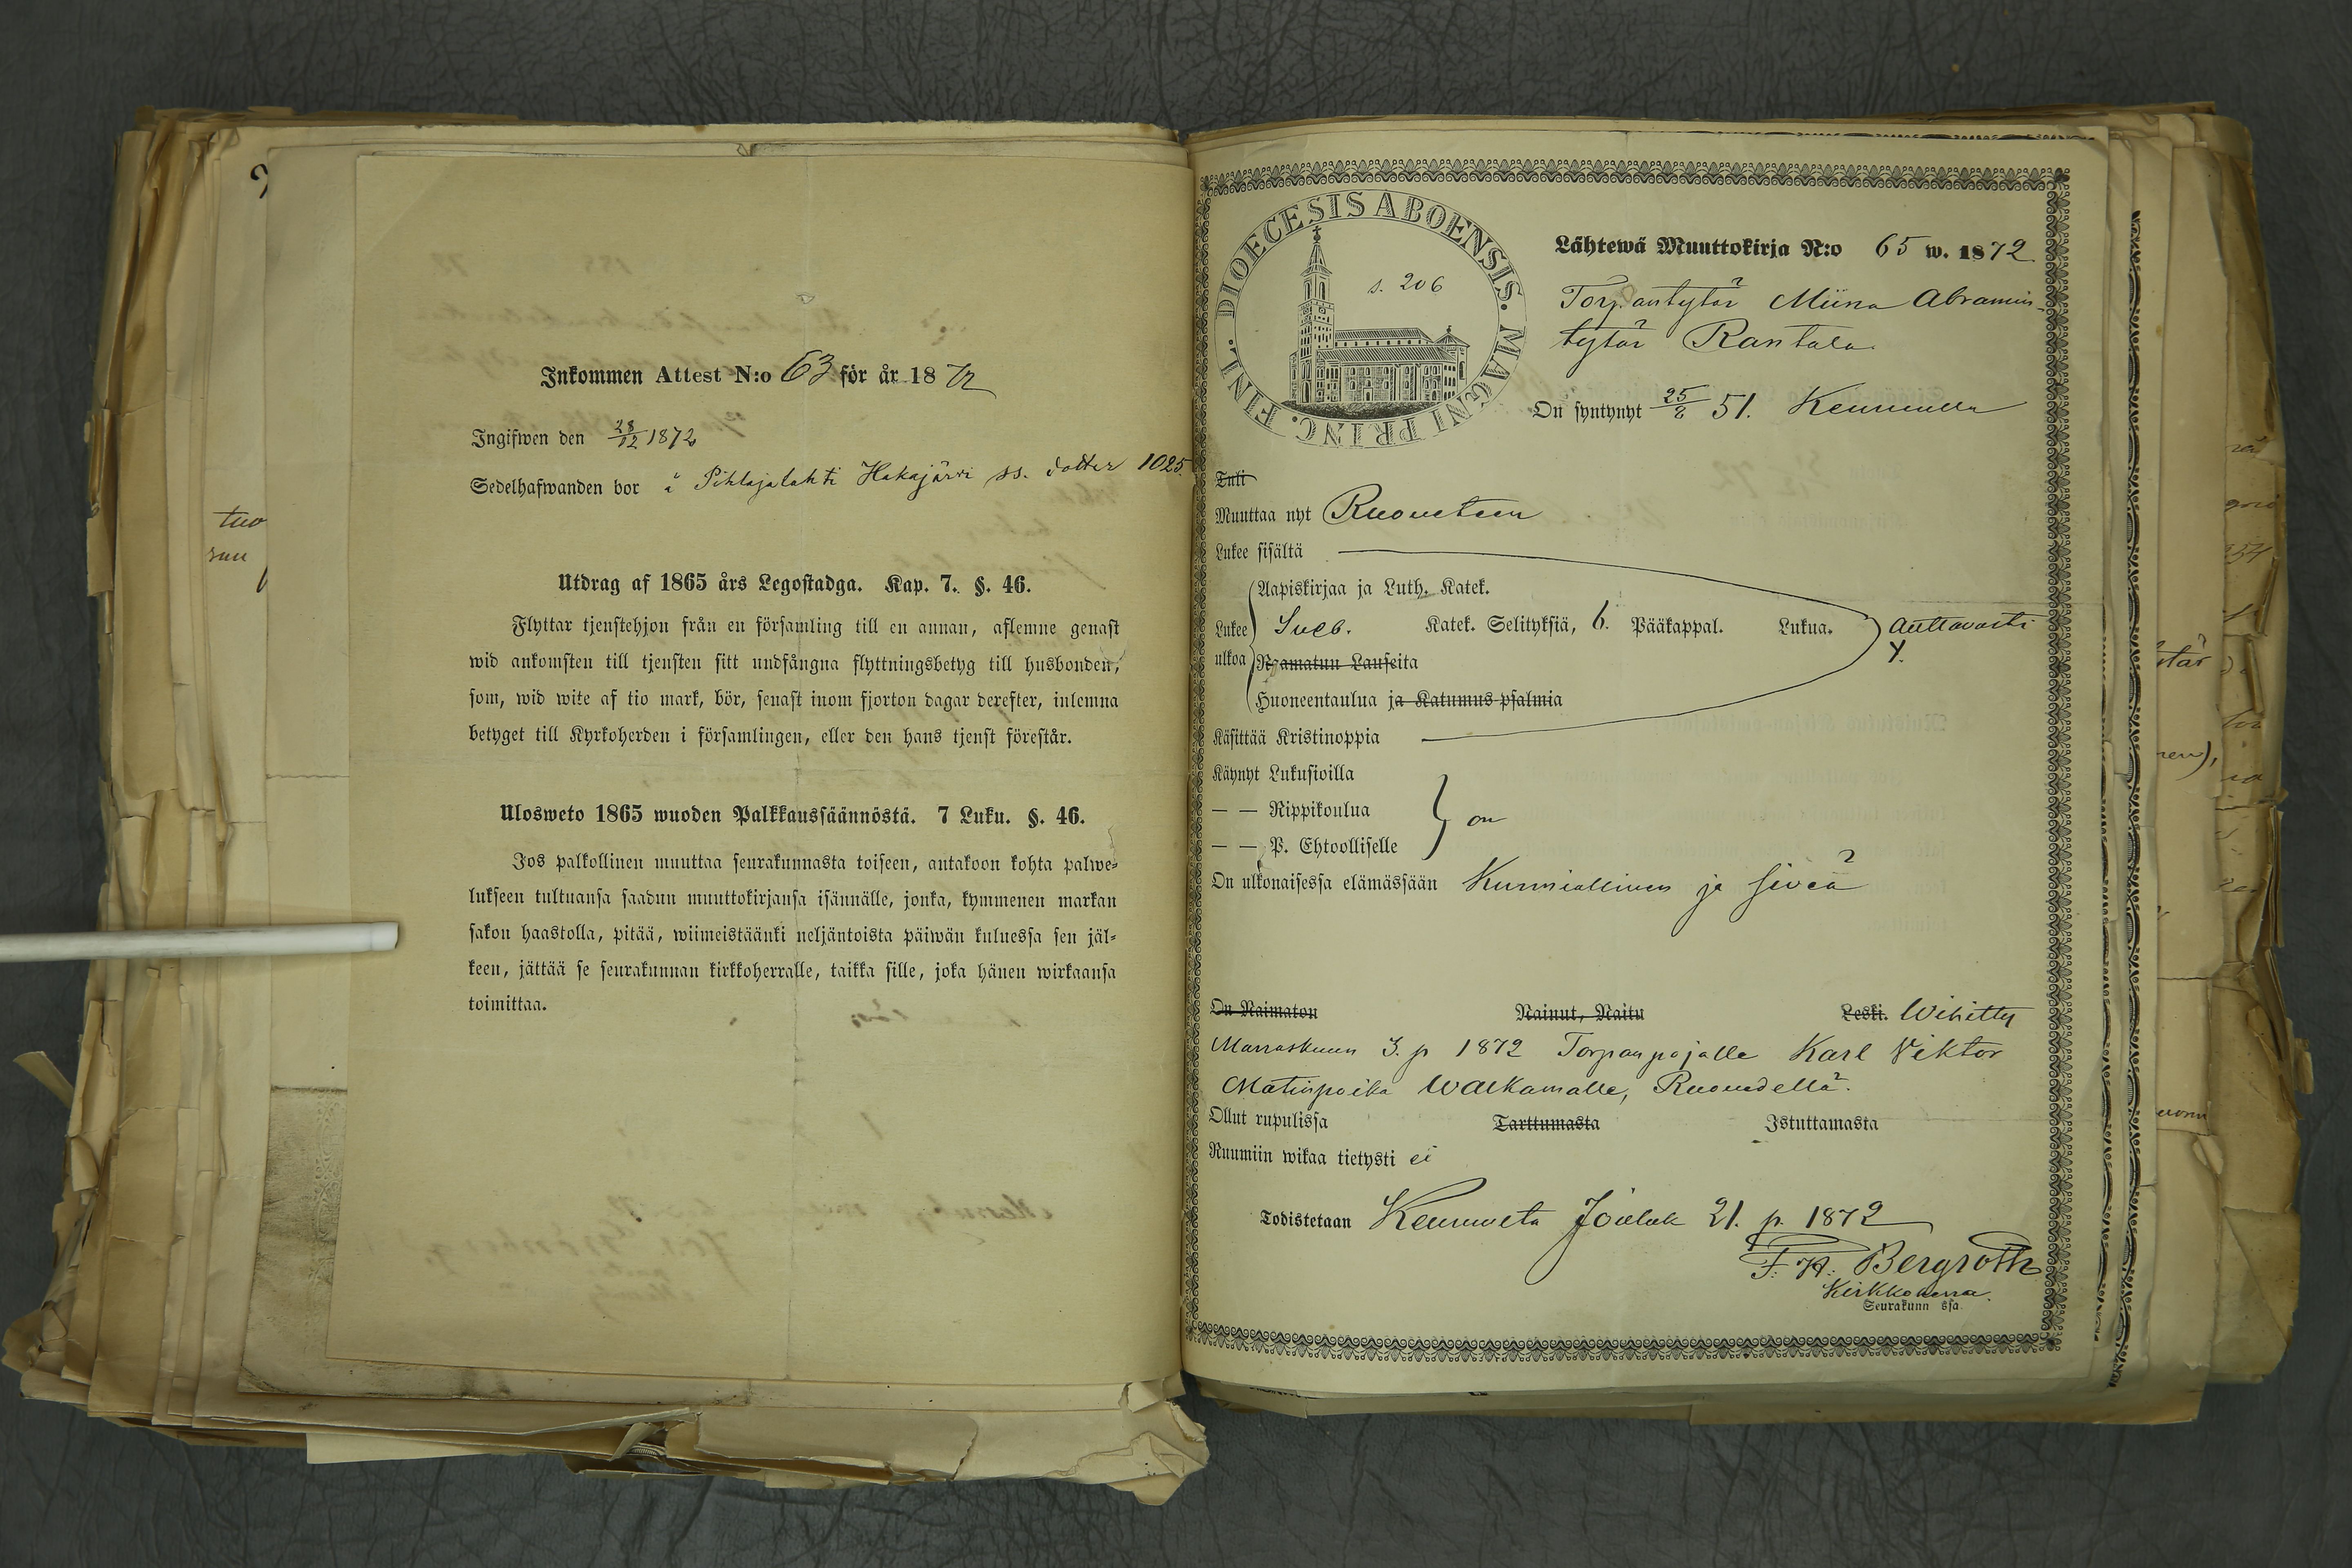 Inkommen Attest N:o 63 för år 1872
Ingifwen den 28/12 1872
Sedelhafwanden bor å Pihlajalahti Hakajärvi ss. dotter 1025
Utdrag af 1865 års Legostadga. Kap. 7. §. 46.
Flyttar tjenstehjon från en församling till en annan, aflemne genast
wid ankomsten till tjensten sitt undfångna flyttningsbetyg till husbonden,
som, wid wite af tio mark, bör, senast inom fjorton dagar derefter, inlemna
betyget till Kyrkoherden i församlingen, eller den hans tjenst förestår.
Ulosweto 1865 wuoden Palkkaussäännöstä. 7 Luku. §. 46.
Jos palkollinen muuttaa seurakunnasta toiseen, antakoon kohta palwe-
lukseen tultuansa saadun muuttokirjansa isännälle, jonka, kymmenen markan
sakon haastolla, pitää, wiimeistäänki neljäntoista päiwän kuluessa sen jäl-
keen, jättää se seurakunnan kirkkoherralle, taikka sille, joka hänen wirkaansa
toimittaa.
tuo
DIOECESIS ABOENSIS. MAGNI PRINC. FINL.
s. 206
Lähtewä Muuttokirja N:o 65 w. 1872
Torpantytär Miina Abramin-
tytär Rantala
On syntynyt 25/8 51. Keuruulla
Tuli
Muuttaa nyt Ruoveteen
Lukee sisältä
Aapiskirjaa ja Luth. Katek.
Lukee Sveb. Katek. Selityksiä, 6. Pääkappal. Lukua. Auttavasti
ulkoa Raamatun Lauseita Y.
Huoneentaulua ja Katumus-psalmia
Käsittää Kristinoppia
Käynyt Lukusioilla
— — Rippikoulua on
— — P. Ehtoolliselle
On ulkonaisessa elämässään Kunniallinen ja siveä
On Naimaton Nainut, Naitu Leski. Wihitty
Marraskuun 3. p 1872 Torpanpojalle Karl Viktor
Matinpoika Walkamalle, Ruovedellä.
Ollut rupulissa Tarttumasta Istuttamasta
Ruumiin wikaa tietysti ei
Todistetaan Keuruulta Jouluk 21. p. 1872
F. H. Bergroth
Kirkkoherra.
Seurakunn ssa.